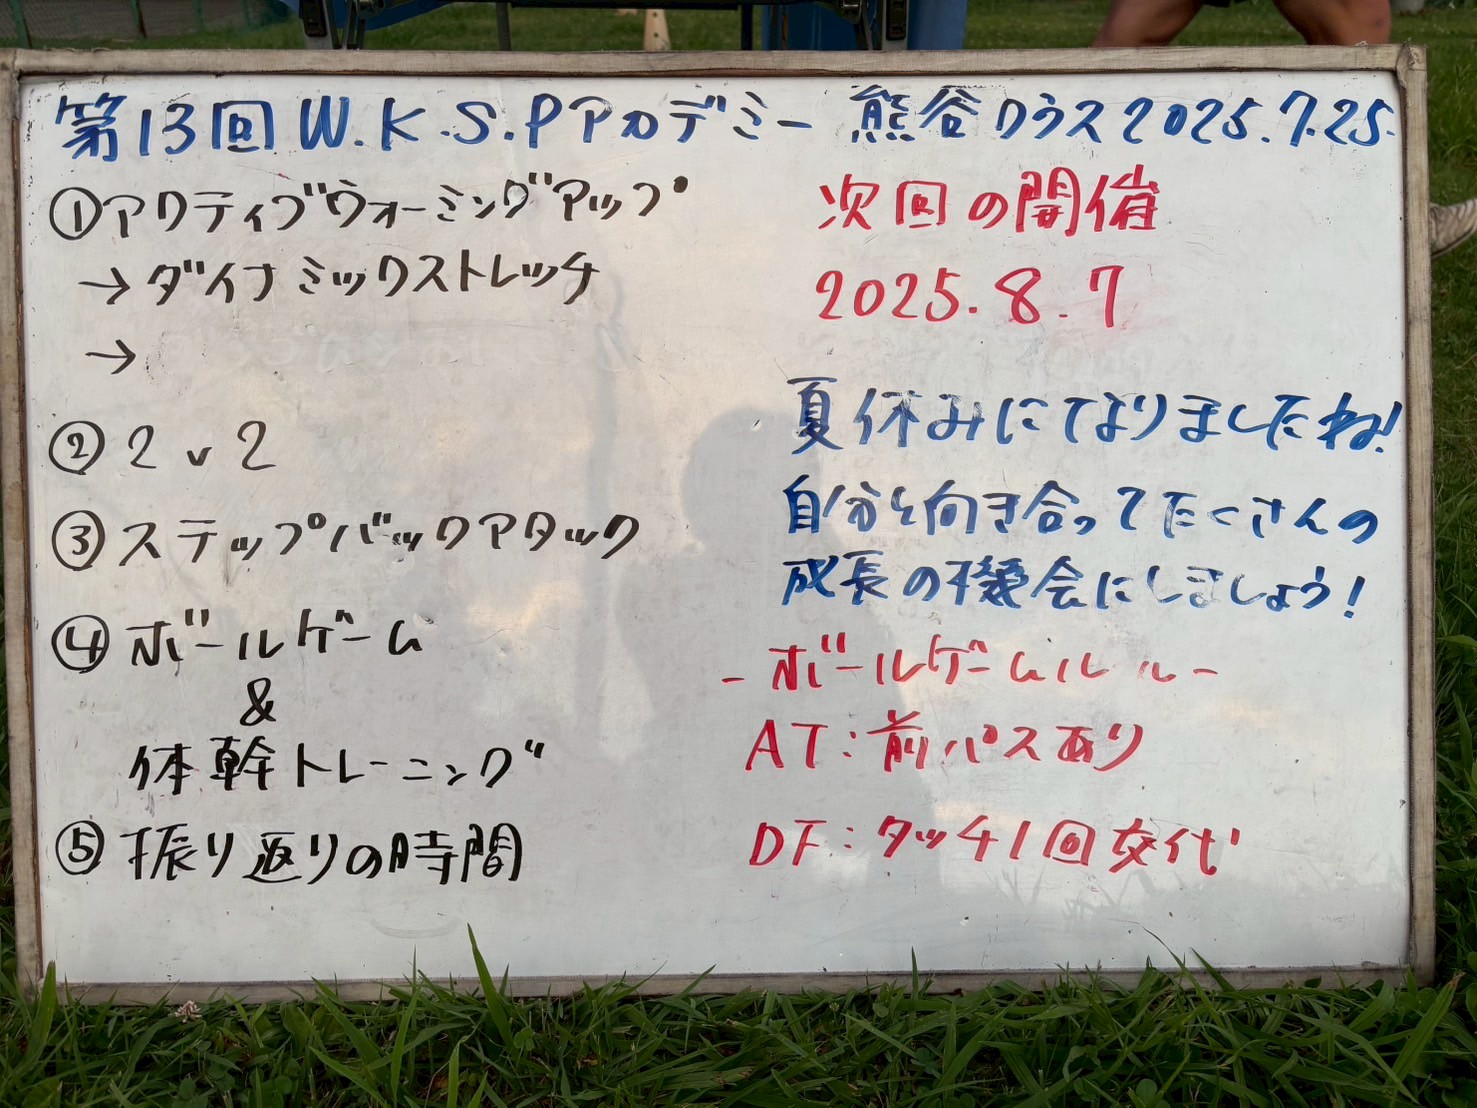 第13回 W.K.S.Pアカデミー 熊谷クラス 2025.7.25.
①アクティブウォーミングアップ
→ダイナミックストレッチ
→
② 2 v 2
③ステップバックアタック
④ボールゲーム
&
体幹トレーニング
⑤振り返りの時間
次回の開催
2025.8.7
夏休みになりましたね!
自分と向き合ってたくさんの
成長の機会にしましょう!
-ボールゲームルール-
AT:前パスあり
DF:タッチ1回交代